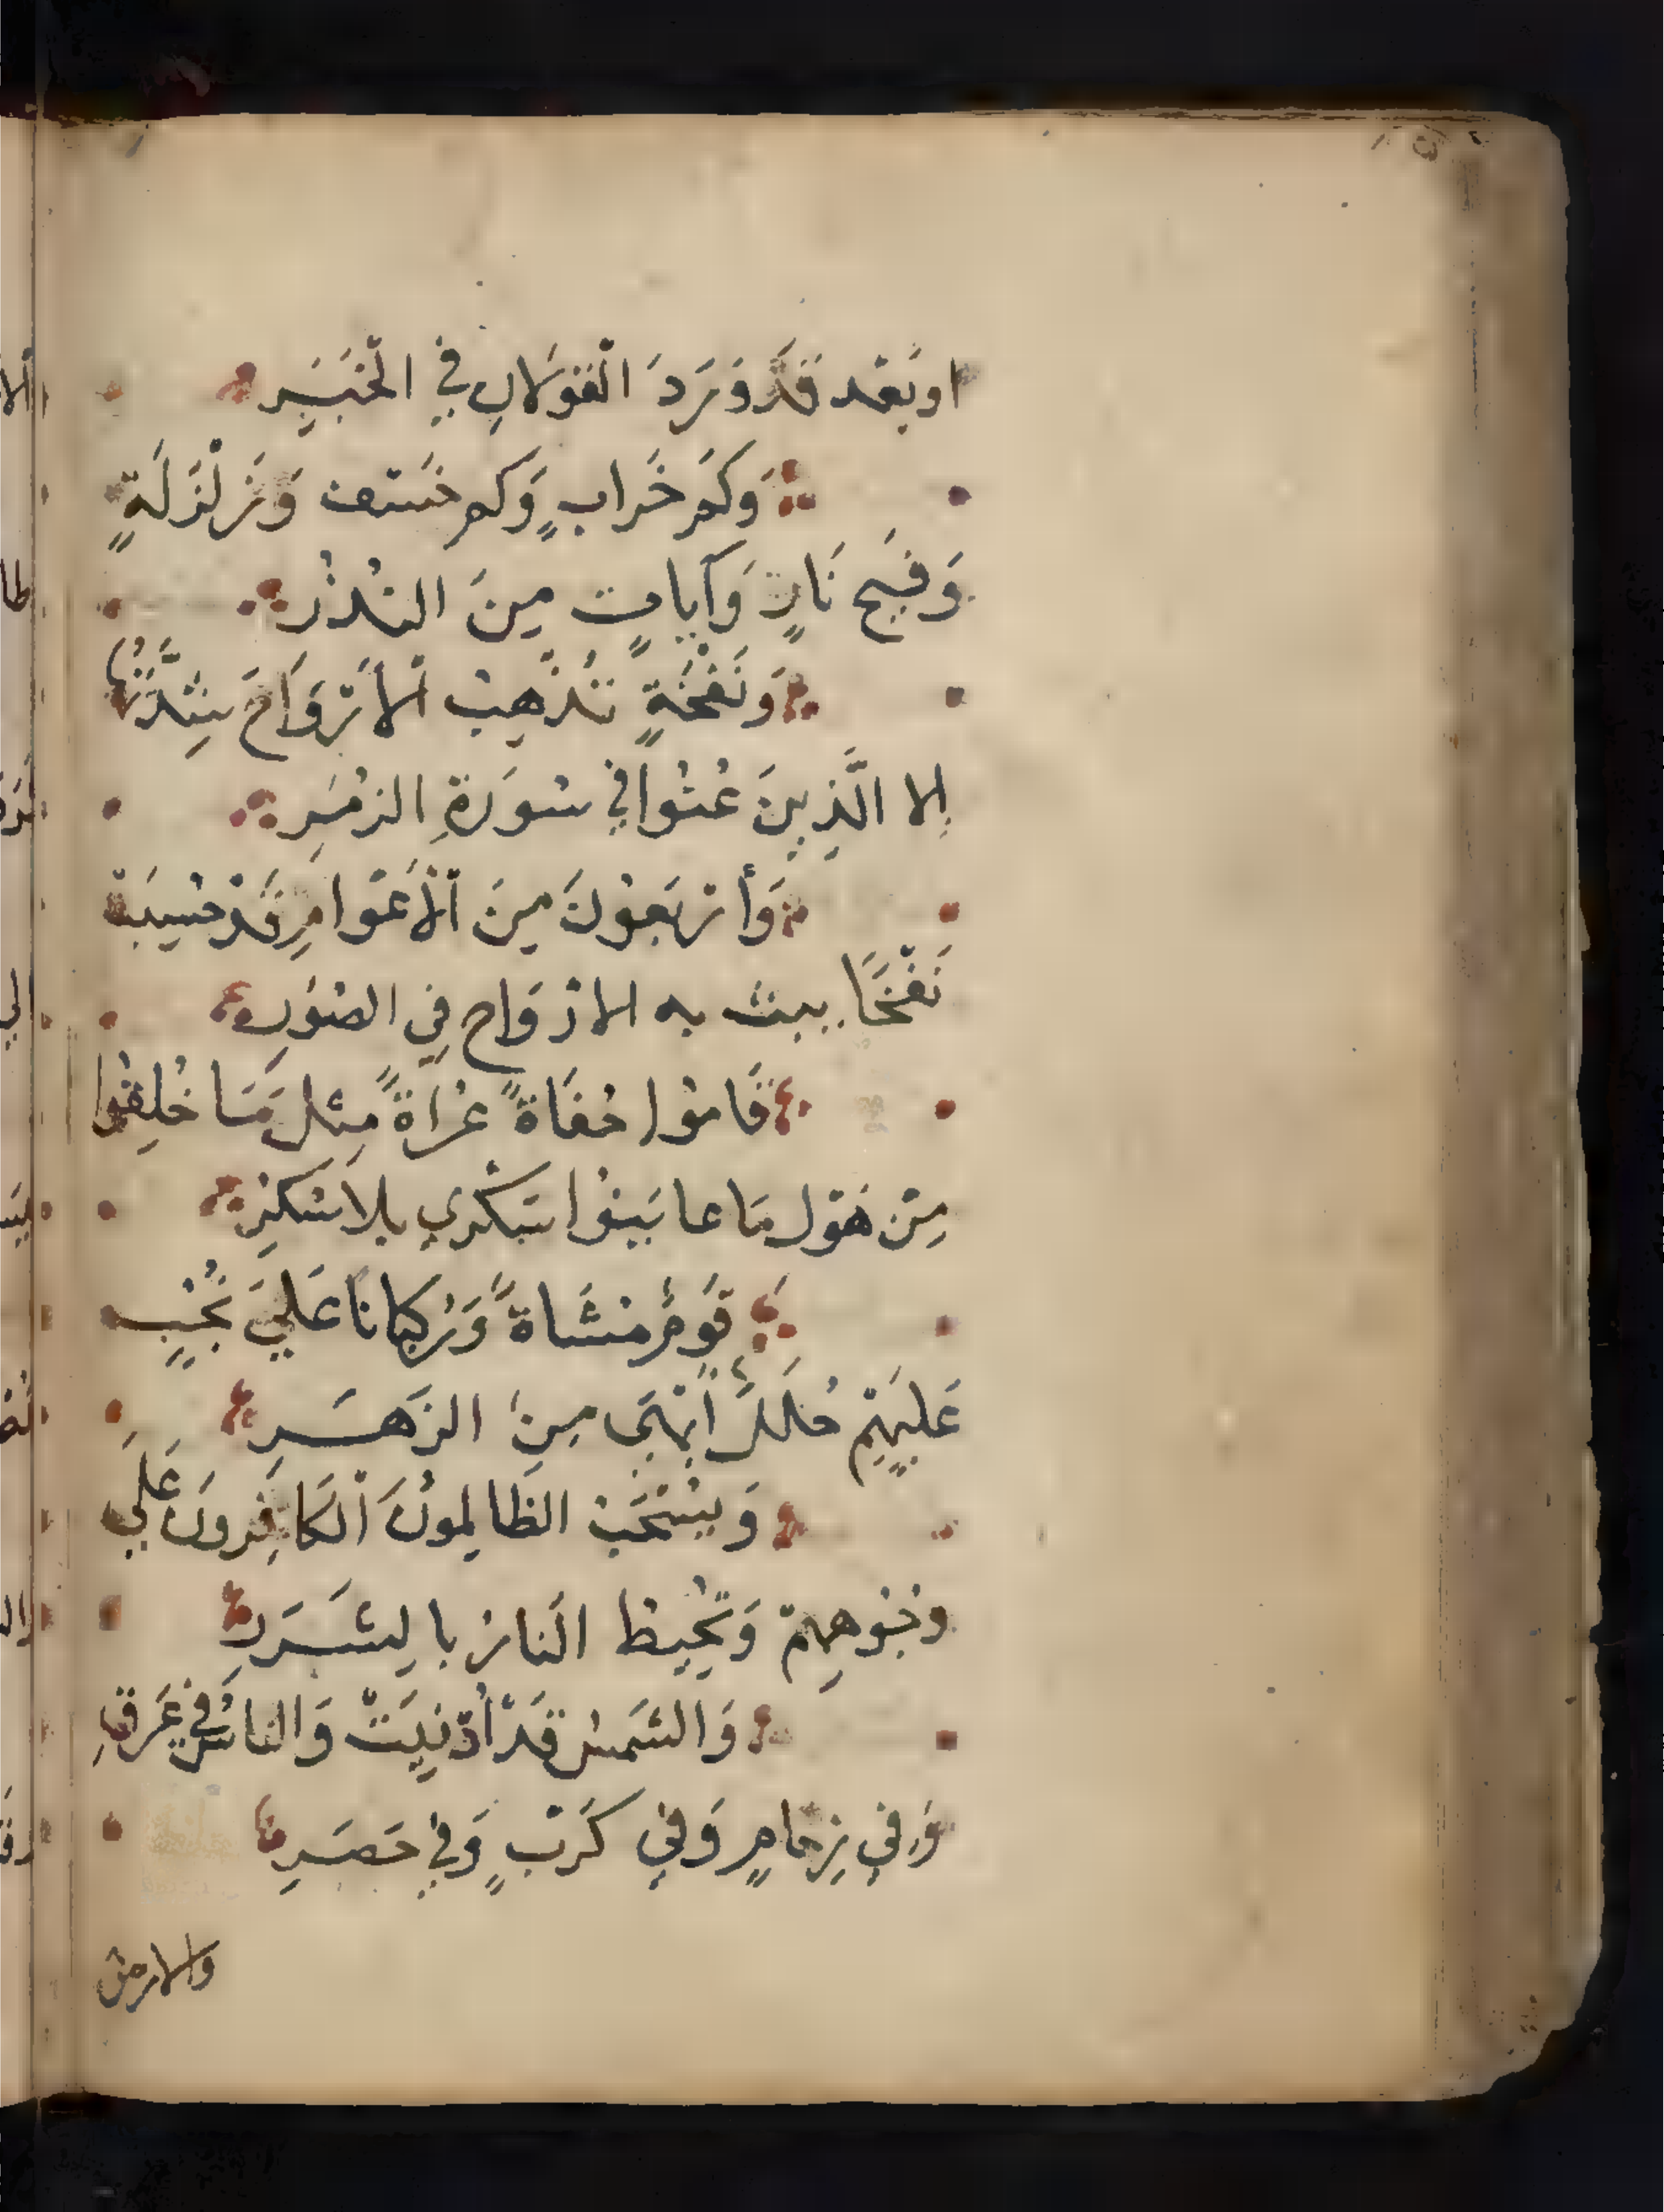 او بَعْد قَدْ وَرَدَ الْقَوْلَانِ فِي الْخَبَرِ
وَكَمْ خَرَابٍ وَكَم خَسْف وَزَلْزَلَةٍ
وَفَيْحِ نَارٍ وَآيَاتٍ مِنَ النُذُرِ
وَنَفْخَةٍ تُذْهِبُ الْأَرْوَاحَ شِدَّتُهَا
إِلا الَّذِينَ عُنُوا فِي سُورَةِ الزُمَرِ
وَأَرْبَعُونَ مِنَ الْأَعْوَامِ قَدْ حُسِبَتْ
نَفْخًا يبث به الارْوَاح فِي الصُوَرِ
قَامُوا حُفَاةً عُرَاةً مِثْل مَا خُلِقُوا
مِنْ هَوْل مَا عايَنُوا سَكْرَي بلا سَكَرِ
قَوْمٌ مُشَاةً وَرُكبانًا عَلَي نُجُبٍ
عَلَيْهِمْ حُلَلٌ أَبْهَى مِنَ الزَهَرِ
وَيُسْحَبُ الظالِمُونَ الْكَافِرونَ عَلَي
وُجُوهِهِمْ وَتُحِيطُ النارُ بالشَرَرِ
وَالشَمْسُ قَدْ أُدْنِيَتْ وَالناسُ فِي عَرَقٍ
وَفِي زِحامٍ وَفِي كَرْبٍ وَفِي حَصَرِ
والارض